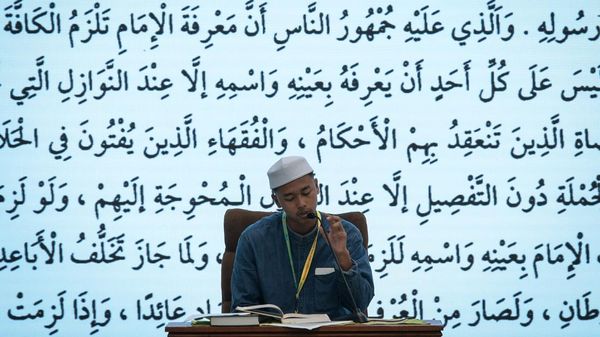 رَسُولِهِ . وَالَّذِي عَلَيْهِ جُمْهُورُ النَّاسِ أَنَّ مَعْرِفَةَ الْإِمَامِ تَلْزَمُ الْكَافَّةَ
لَيْسَ عَلَى كُلِّ أَحَدٍ أَنْ يَعْرِفَهُ بِعَيْنِهِ وَاسْمِهِ إلَّا عِنْدَ النَّوَازِلِ الَّتِي
ضَاةِ الَّذِينَ تَنْعَقِدُ بِهِمْ الْأَحْكَامُ ، وَالْفُقَهَاءِ الَّذِينَ يُفْتُونَ فِي الْحَلَا
لْجُمْلَةِ دُونَ التَّفْصِيلِ إلَّا عِنْدَ الْمُحْوِجَةِ إلَيْهِمْ ، وَلَوْ لَزِمَ
الْإِمَامَ بِعَيْنِهِ وَاسْمِهِ ، وَلَمَا جَازَ تَخَلُّفُ الْأَبَاعِدِ
طَانِ ، وَلَصَارَ مِنْ عَائِدًا ، وَإِذَا لَزِمَتْ